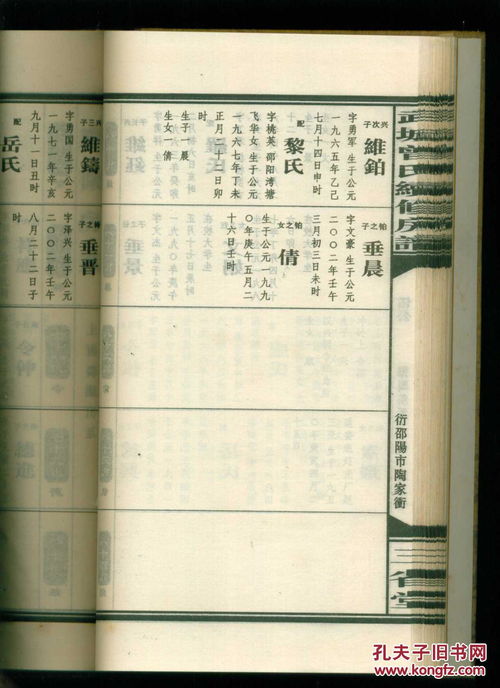 武城曾氏續修房譜
衍邵陽市陶家衝
三省堂
兴次子 維鉑
字勇軍 生于公元
一九六五年乙己
七月十四日申时
配 黎氏
字桃英 邵阳湾塘
飞华女 生于公元
一九六七年丁未
正月二十二日卯
时
生子一 晨
生女一 倩
兴三子 維鑄
字勇国 生于公元
一九七一年辛亥
九月十一日丑时
配 岳氏
鉑之子 垂晨
字文豪 生于公元
二〇〇二年壬午
三月初三日未时
鉑之女 倩
生于公元一九九
〇年庚午五月二
十六日壬时
鑄之子 垂晋
字泽兴 生于公元
二〇〇二年壬午
八月二十二日子
时
孔夫子旧书网
www.kongfz.com